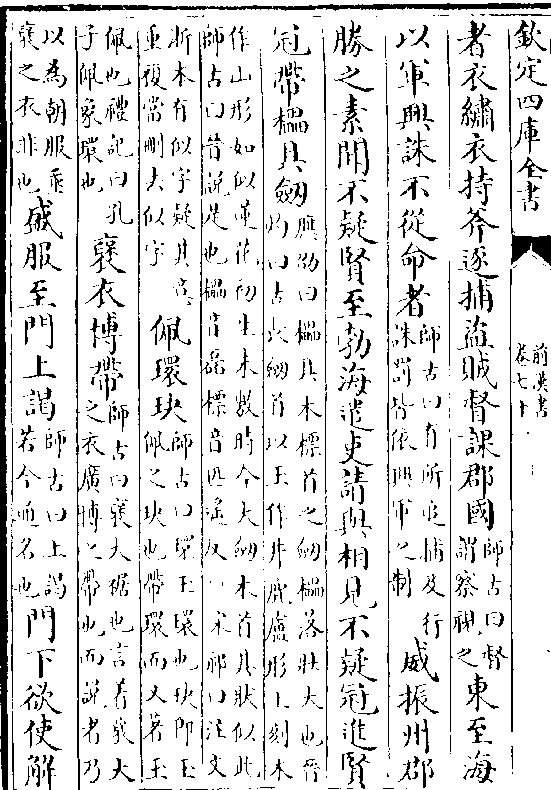 欽定四庫全書
前漢書
卷七十一
者衣繡衣持斧逐捕盜賊督課郡國師古曰督謂察視之東至海
以軍興誅不從命者師古曰有所追捕及行誅罰皆依興軍之制威振州郡
勝之素聞不疑賢至勃海遣吏請與相見不疑冠進賢
冠帶櫑具劒應劭曰櫑具木標首之劒櫑落壯大也晉灼曰古長劒首以玉作井鹿盧形上刻木
作山形如似蓮花初生未敷時今大劒木首其狀似此師古曰晉說是也櫑音磊標音匹遙反宋祁曰注文
浙本有似字疑其重複當刪去似字佩環玦師古曰環玉環也玦即玉佩之玦也帶環而又著玉
佩也禮記曰孔子佩象環也襃衣博帶師古曰襃大裾也言著襃大之衣廣博之帶也而說者乃
以為朝服垂襃之衣非也盛服至門上謁師古曰上謁若今通名也門下欲使解